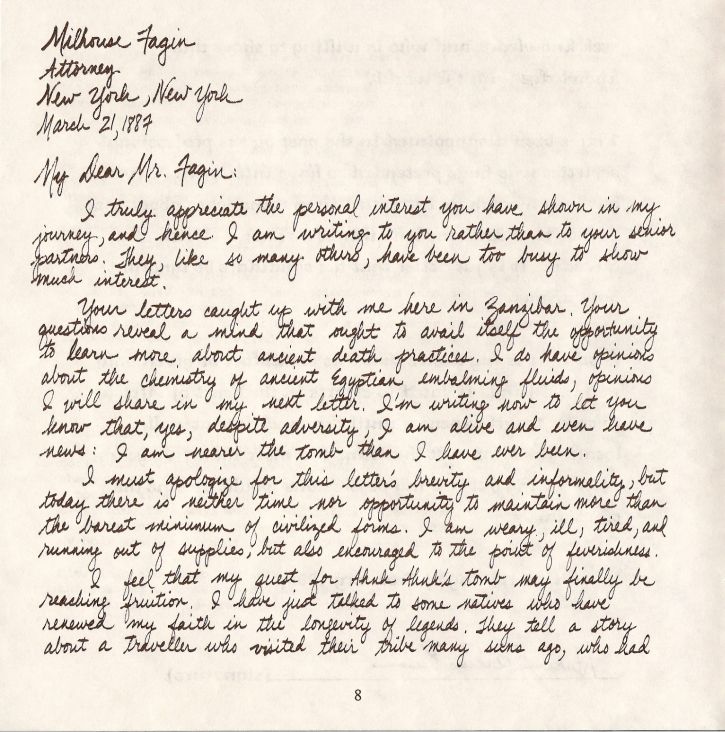 Milhouse Fagin
Attorney
New York, New York
March 21, 1887
My Dear Mr. Fagin:
I truly appreciate the personal interest you have shown in my
journey, and hence I am writing to you rather than to your senior
partners. They, like so many others, have been too busy to show
much interest.
Your letters caught up with me here in Zanzibar. Your
questions reveal a mind that ought to avail itself the opportunity
to learn more about ancient death practices. I do have opinions
about the chemistry of ancient Egyptian embalming fluids, opinions
I will share in my next letter. I'm writing now to let you
know that, yes, despite adversity, I am alive and even have
news: I am nearer the tomb than I have ever been.
I must apologize for this letter's brevity and informality, but
today there is neither time nor opportunity to maintain more than
the barest minimum of civilized forms. I am weary, ill, tired, and
running out of supplies, but also encouraged to the point of feverishness.
I feel that my quest for Ahnk Ahnk's tomb may finally be
reaching fruition. I have just talked to some natives who have
renewed my faith in the longevity of legends. They tell a story
about a traveller who visited their tribe many suns ago, who had
8